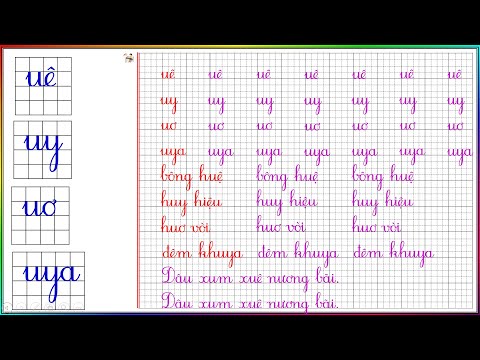 uê
uy
uơ
uya
uê uê uê uê uê uê uê
uy uy uy uy uy uy uy
uơ uơ uơ uơ uơ uơ uơ
uya uya uya uya uya uya uya
bông huệ bông huệ bông huệ
huy hiệu huy hiệu huy hiệu
huơ vòi huơ vòi huơ vòi
đêm khuya đêm khuya đêm khuya
Dâu xum xuê nương bãi.
Dâu xum xuê nương bãi.